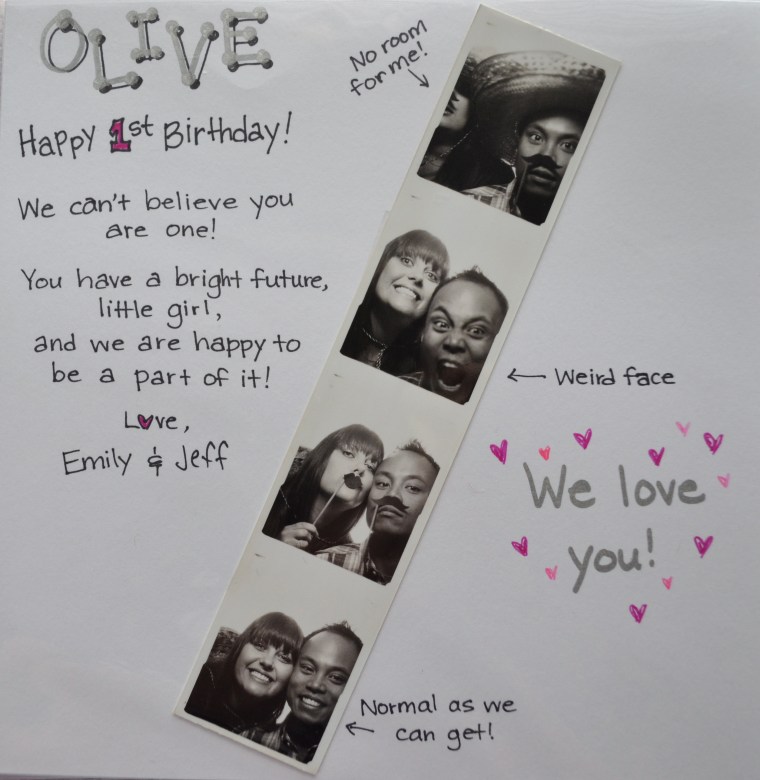 OLIVE
Happy 1st Birthday!
We can't believe you
are one!
You have a bright future,
little girl,
and we are happy to
be a part of it!
Love,
Emily & Jeff
No room
for me!
Weird face
We love
you!
Normal as we
can get!